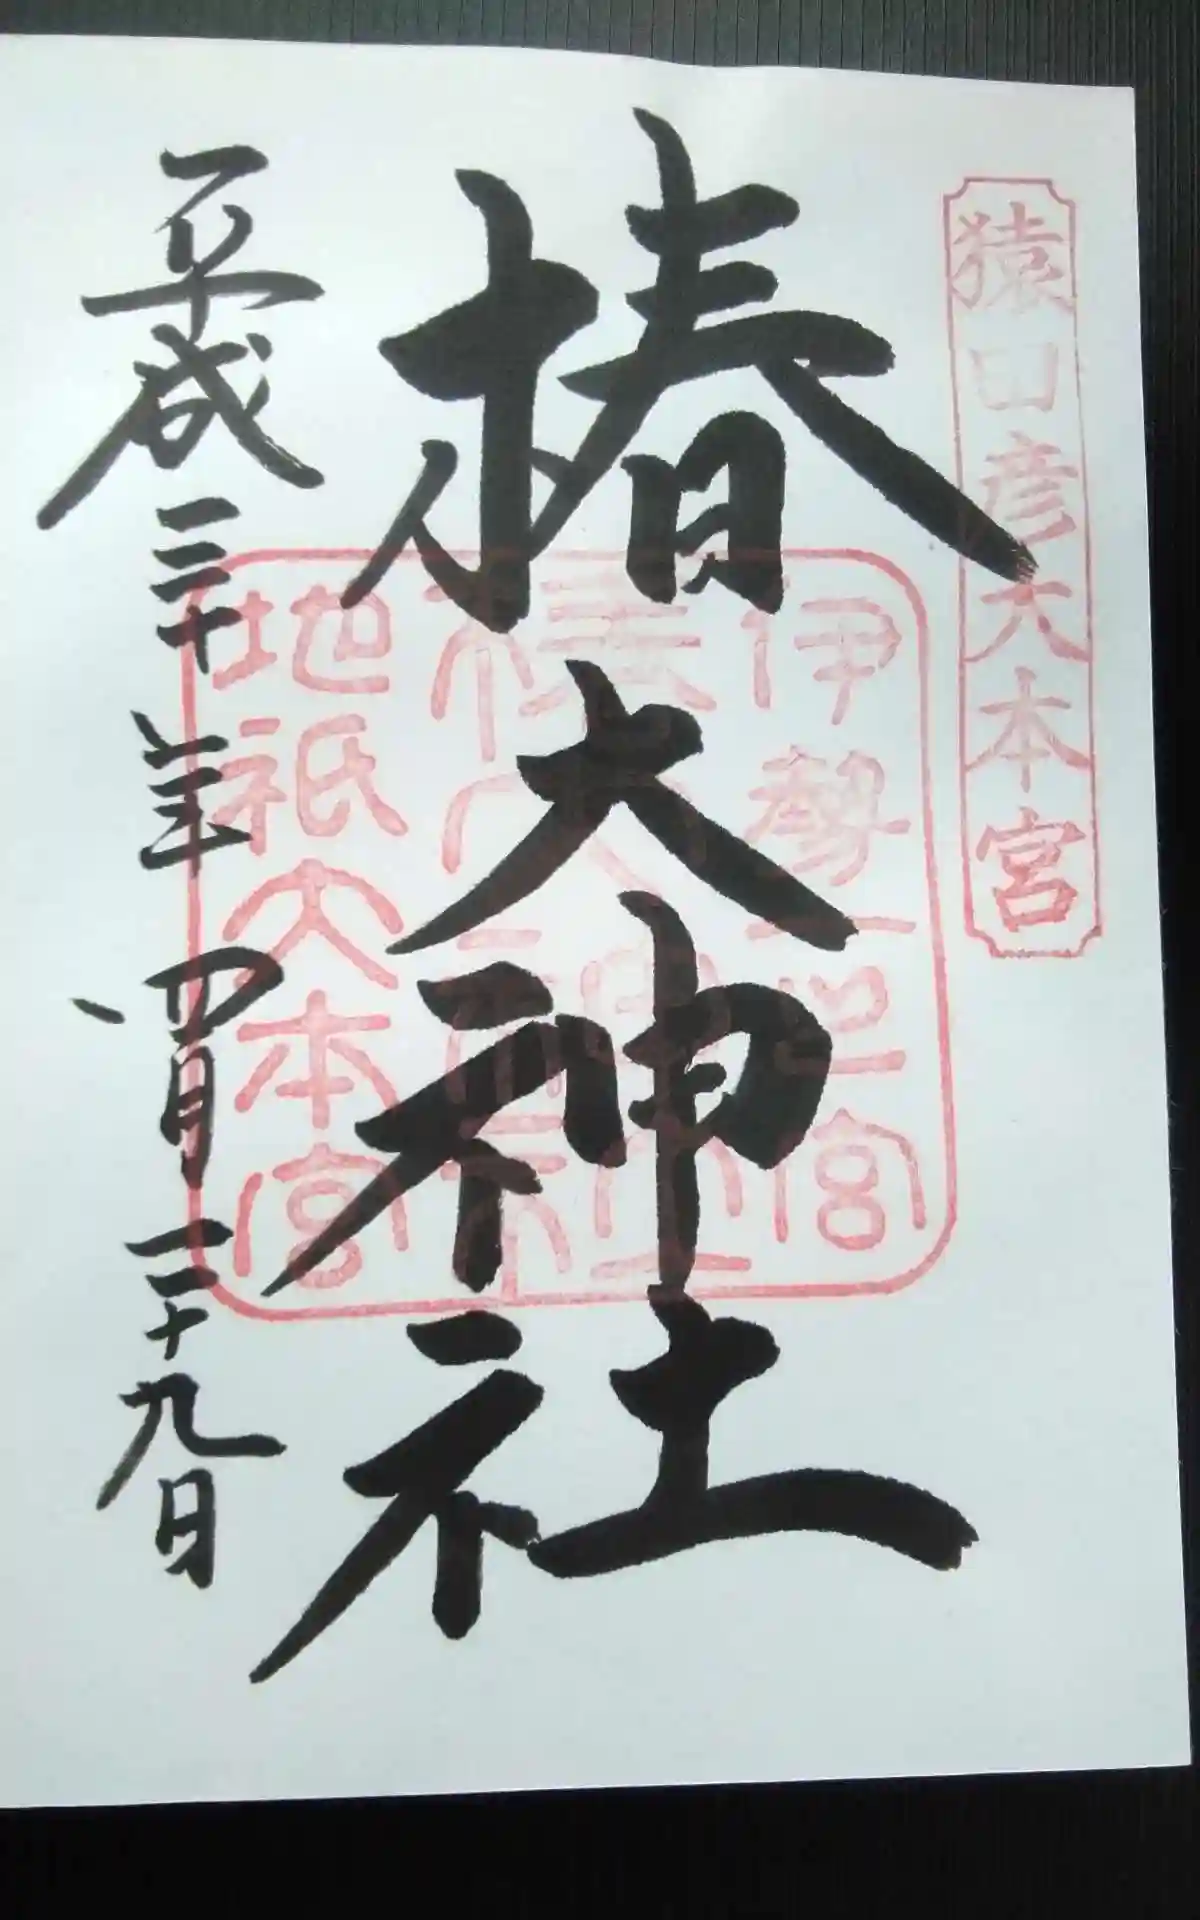 猿田彦大本宮
椿大神社
伊勢一之宮
椿大神社
地祇大本宮
平成三十年四月二十九日